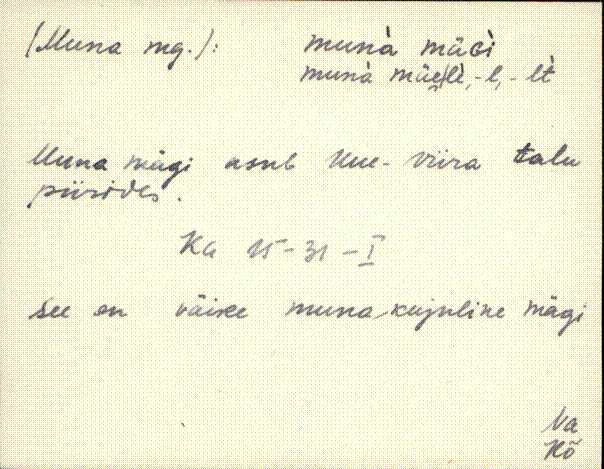 (Muna mg.): munà mäGì
munà mäe̬lè, -l, -lt̀
Muna mägi asub Uue-Viira talu
piirides.
Ka 15-31-I
See on väike muna-kujuline mägi
Va
Kõ